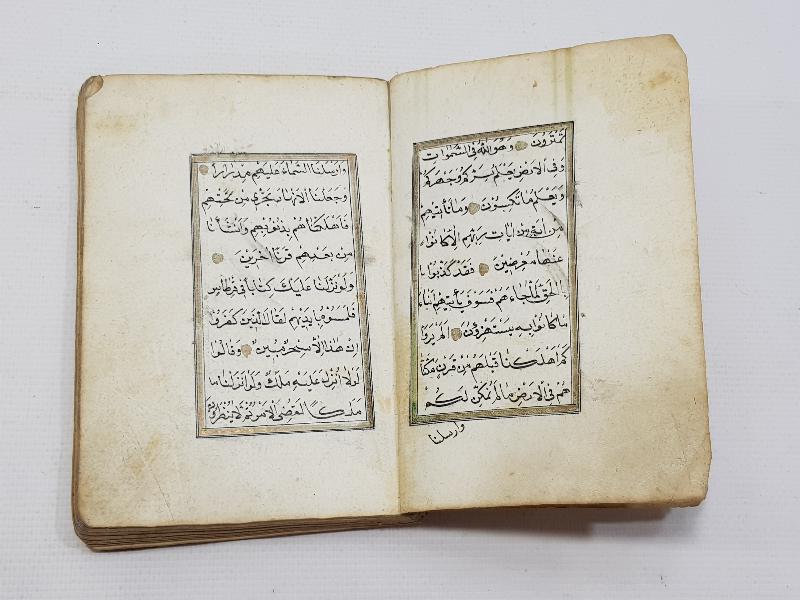 تَمْتَرُونَ وَهُوَ اللّٰهُ فِى السَّمٰوَاتِ
وَفِى الْاَرْضِ يَعْلَمُ سِرَّكُمْ وَجَهْرَكُمْ
وَيَعْلَمُ مَا تَكْسِبُونَ وَمَا تَأْتِيهِمْ
مِنْ اٰيَةٍ مِنْ اٰيَاتِ رَبِّهِمْ اِلَّا كَانُوا
عَنْهَا مُعْرِضِينَ فَقَدْ كَذَّبُوا
بِالْحَقِّ لَمَّا جَاءَهُمْ فَسَوْفَ يَأْتِيهِمْ اَنْبَاءُ
مَا كَانُوا بِهِ يَسْتَهْزِؤُنَ اَلَمْ يَرَوْا
كَمْ اَهْلَكْنَا قَبْلَهُمْ مِنْ قَرْنٍ مَكَّنَّا
هُمْ فِى الْاَرْضِ مَا لَمْ نُمَكِّنْ لَكُمْ
وارسلنا
وَاَرْسَلْنَا السَّمَاءَ عَلَيْهِمْ مِدْرَارًا
وَجَعَلْنَا الْاَنْهَارَ تَجْرِى مِنْ تَحْتِهِمْ
فَاَهْلَكْنَاهُمْ بِذُنُوبِهِمْ وَاَنْشَأْنَا
مِنْ بَعْدِهِمْ قَرْنًا اٰخَرِينَ
وَلَوْ نَزَّلْنَا عَلَيْكَ كِتَابًا فِى قِرْطَاسٍ
فَلَمَسُوهُ بِاَيْدِيهِمْ لَقَالَ الَّذِينَ كَفَرُوا
اِنْ هٰذَا اِلَّا سِحْرٌ مُبِينٌ وَقَالُوا
لَوْلَا اُنْزِلَ عَلَيْهِ مَلَكٌ وَلَوْ اَنْزَلْنَا
مَلَكًا لَقُضِىَ الْاَمْرُ ثُمَّ لَا يُنْظَرُونَ